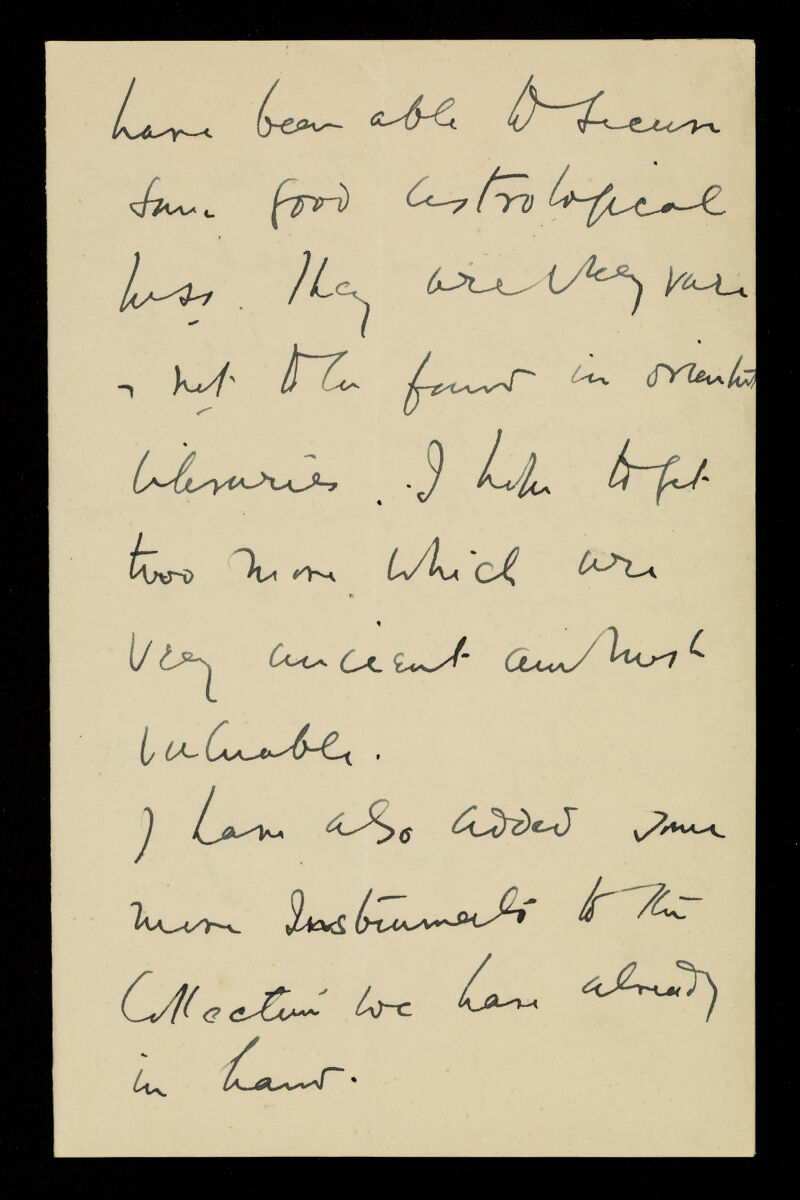 have been able to secure
some good astrological
mss. They are very rare
& not to be found in oriental
libraries. I hope to get
two more which are
very ancient and most
valuable.
I have also added some
more Instruments to the
Collection we have already
in hand.